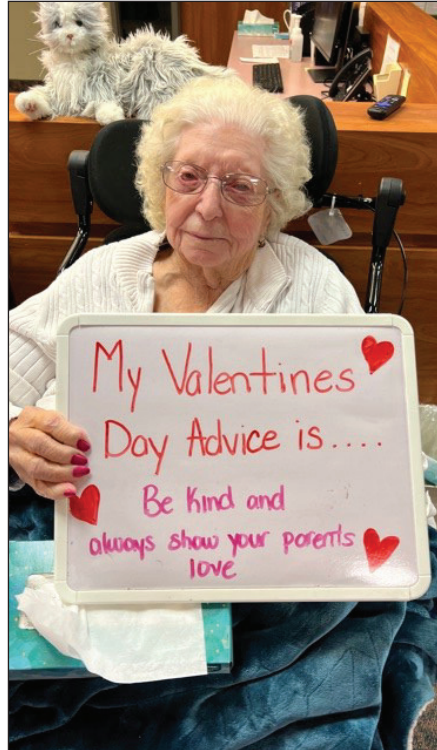 My Valentines
Day Advice is....
Be Kind and
always show your parents
love